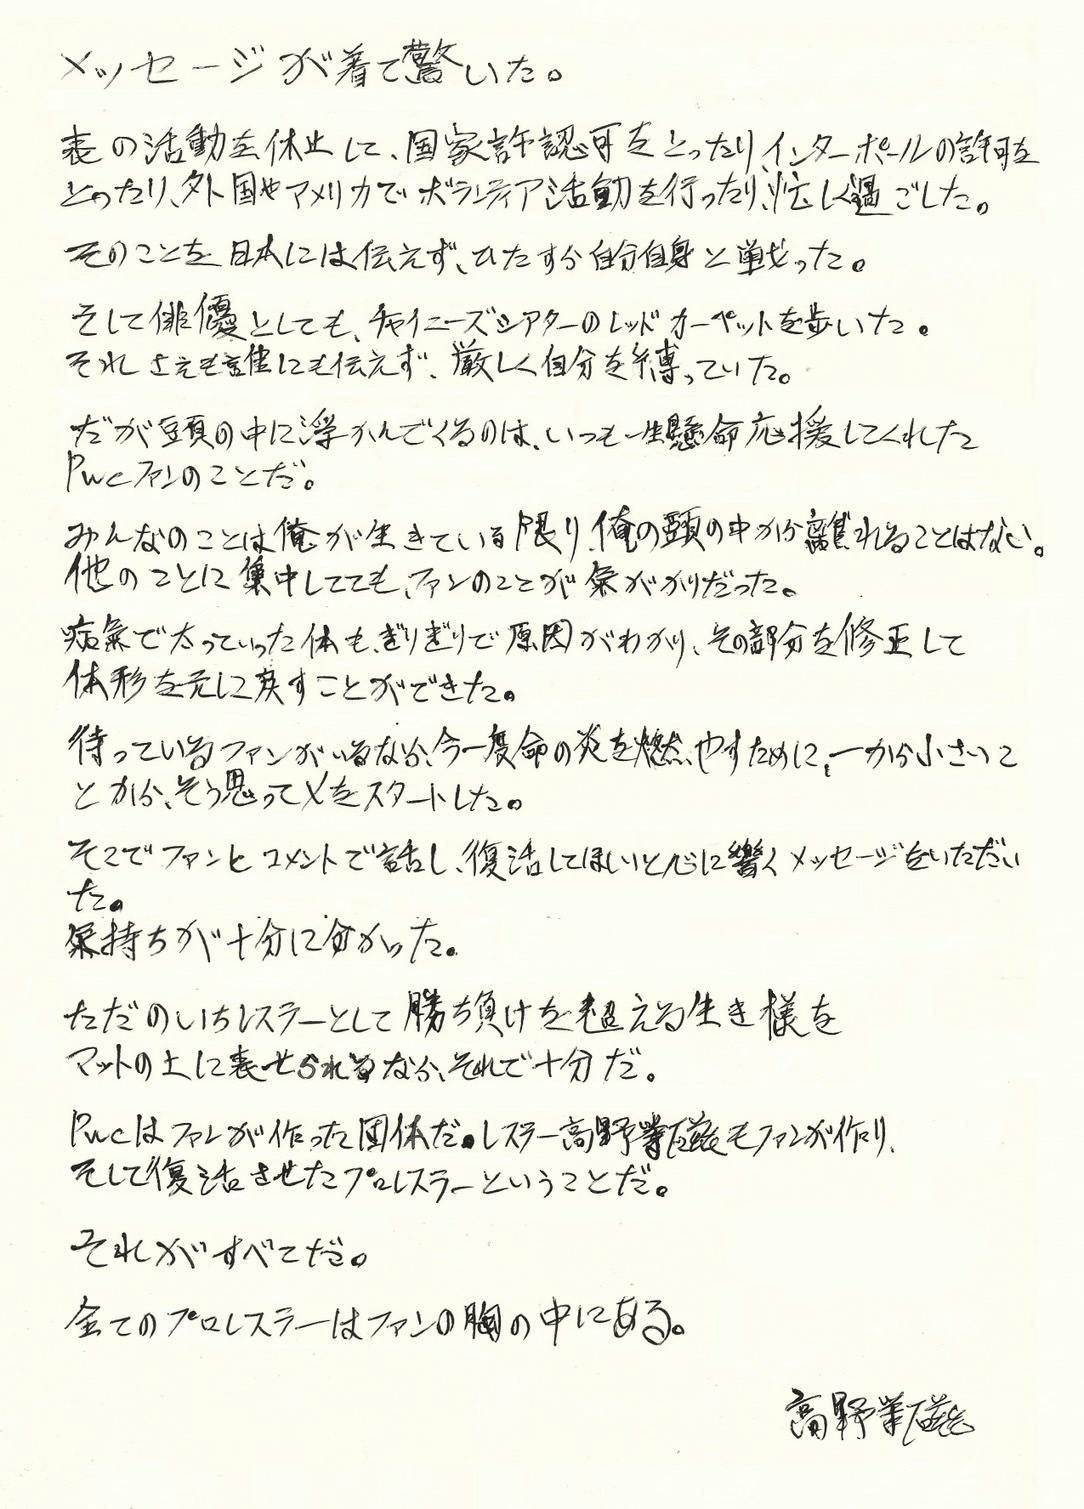 メッセージが着て驚いた。
表の活動を休止して、国家許認可をとったり、インターポールの許可を
とったり、外国やアメリカでボランティア活動を行ったり、忙しく過ごした。
そのことを日本には伝えず、ひたすら自分自身と戦った。
そして俳優としても、チャイニーズシアターのレッドカーペットを歩いた。
それさえも誰にも伝えず、厳しく自分を縛っていた。
だが頭の中に浮かんでくるのは、いつも一生懸命応援してくれした
PWCファンのことだ。
みんなのことは俺が生きている限り、俺の頭の中から離れることはない。
他のことに集中してても、ファンのことが気がかりだった。
病氣で太っていった体も、ぎりぎりで原因がわかり、その部分を修正して
体形を元に戻すことができた。
待っているファンがいるなら、今一度命の炎を燃やすために、一から小さいこ
とから、そう思ってXをスタートした。
そこでファンとコメントで話し、復活してほしいと心に響くメッセージをいただい
た。
気持ちが十分に分かった。
ただのいちレスラーとして勝ち負けを超える生き様を
マットの上に表せられるなら、それで十分だ。
PWCはファンが作った団体だ。レスラー高野拳磁もファンが作り、
そして復活させたプロレスラーということだ。
それがすべてだ。
全てのプロレスラーはファンの胸の中にある。
高野拳磁